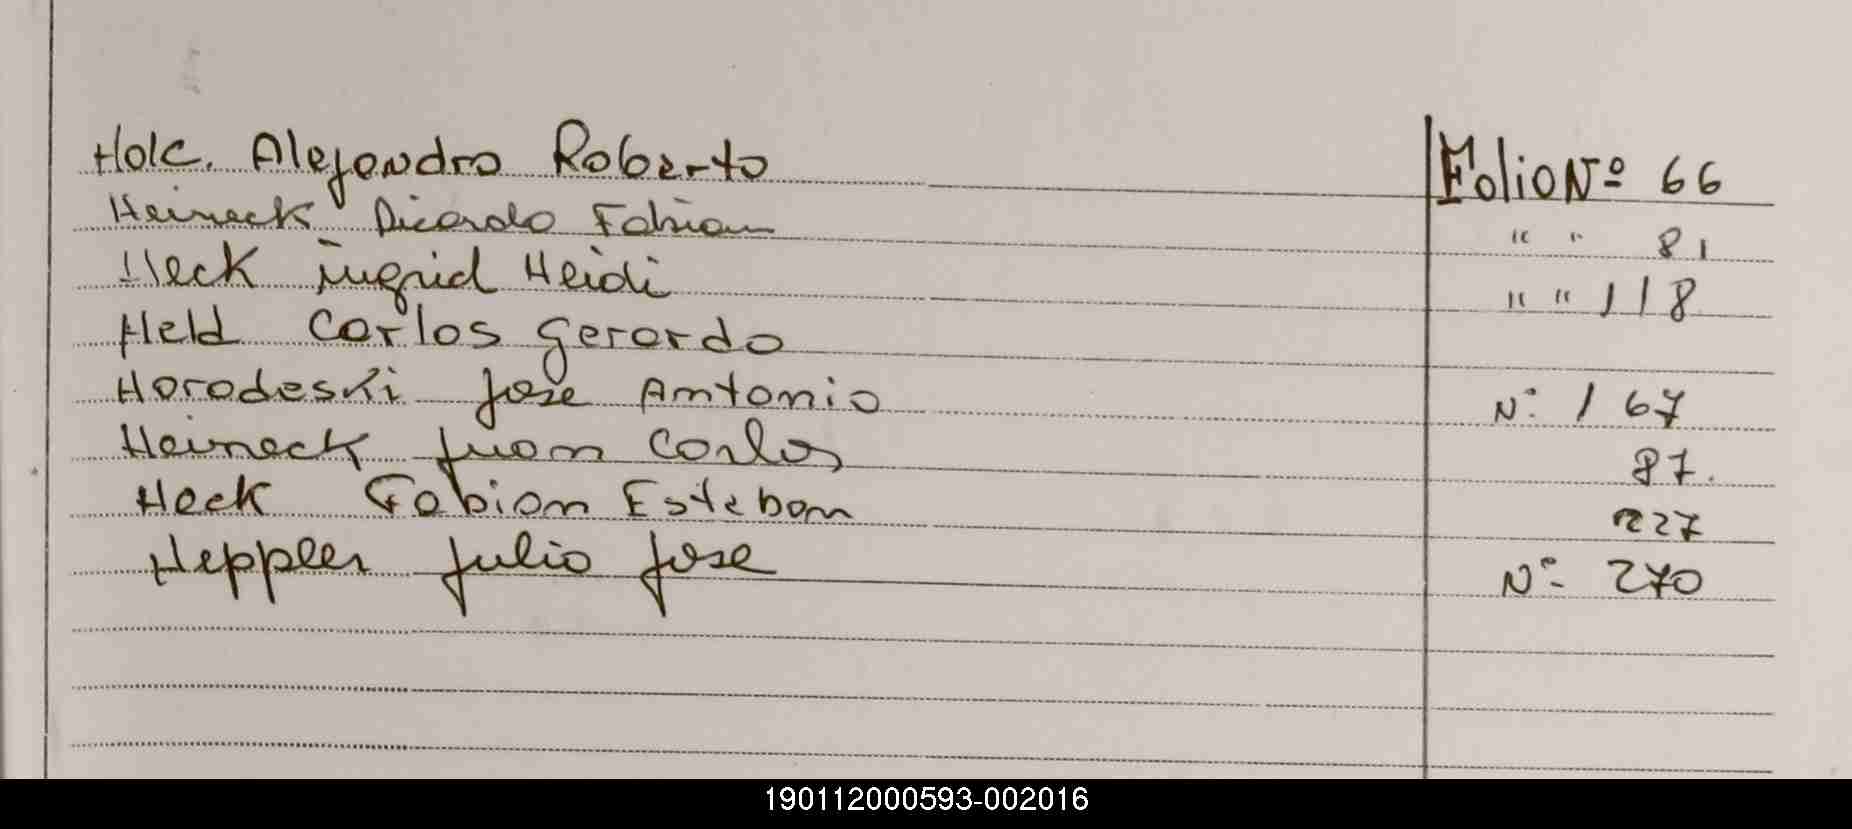 Holc. Alejandro Roberto Folio Nº 66
Heineck Ricardo Fabian " " 81
Heck ingrid Heidi " " 118
Held Carlos Gerardo
Horodeski Jose Antonio Nº 167
Heineck Juan Carlos 87.
Heck Fabian Esteban 227
Heppler Julio Jose Nº 270
190112000593-002016